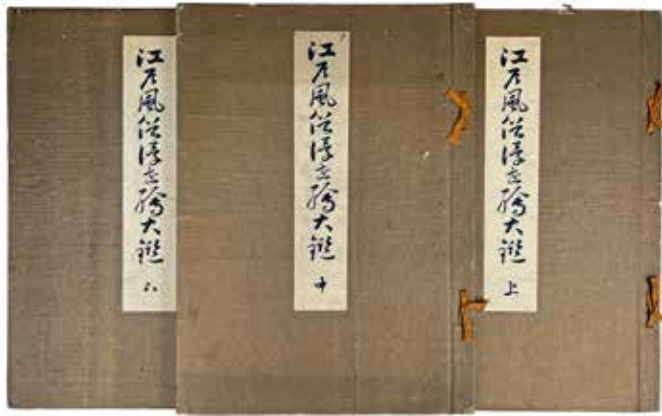 江戸風俗浮世繪大鑑 上
江戸風俗浮世繪大鑑 中
江戸風俗浮世繪大鑑 下